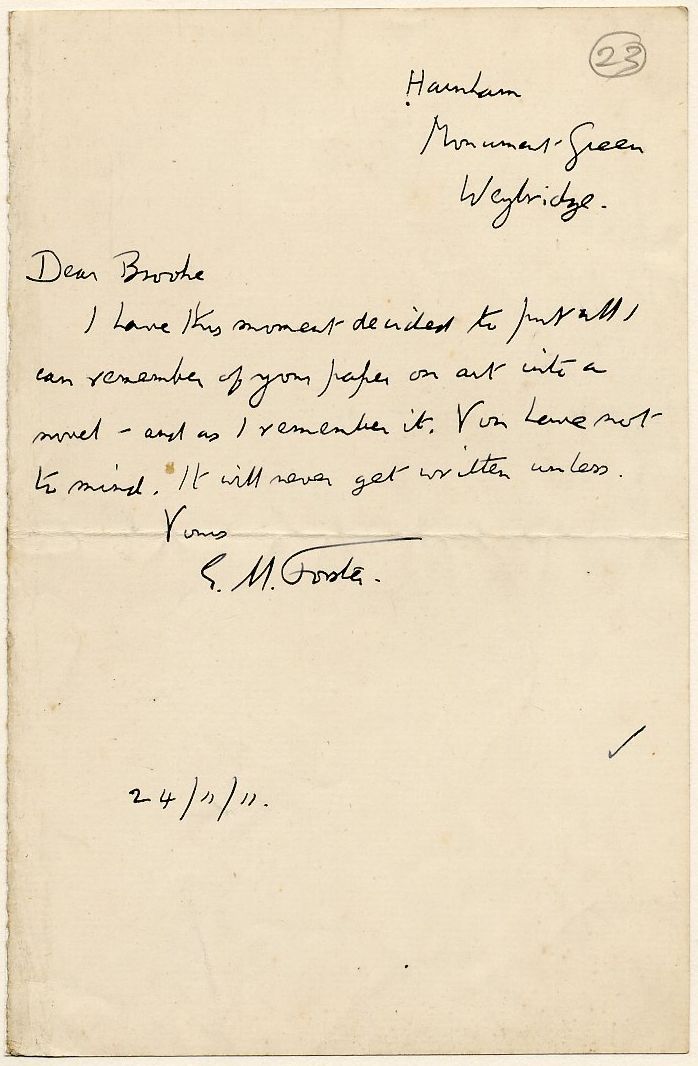 23
Harnham
Monument Green
Weybridge.
Dear Brooke
I have this moment decided to put all I
can remember of your paper on art into a
novel – and as I remember it. You have not
to mind. It will never get written unless.
Yours
E. M. Forster.
24/11/11.